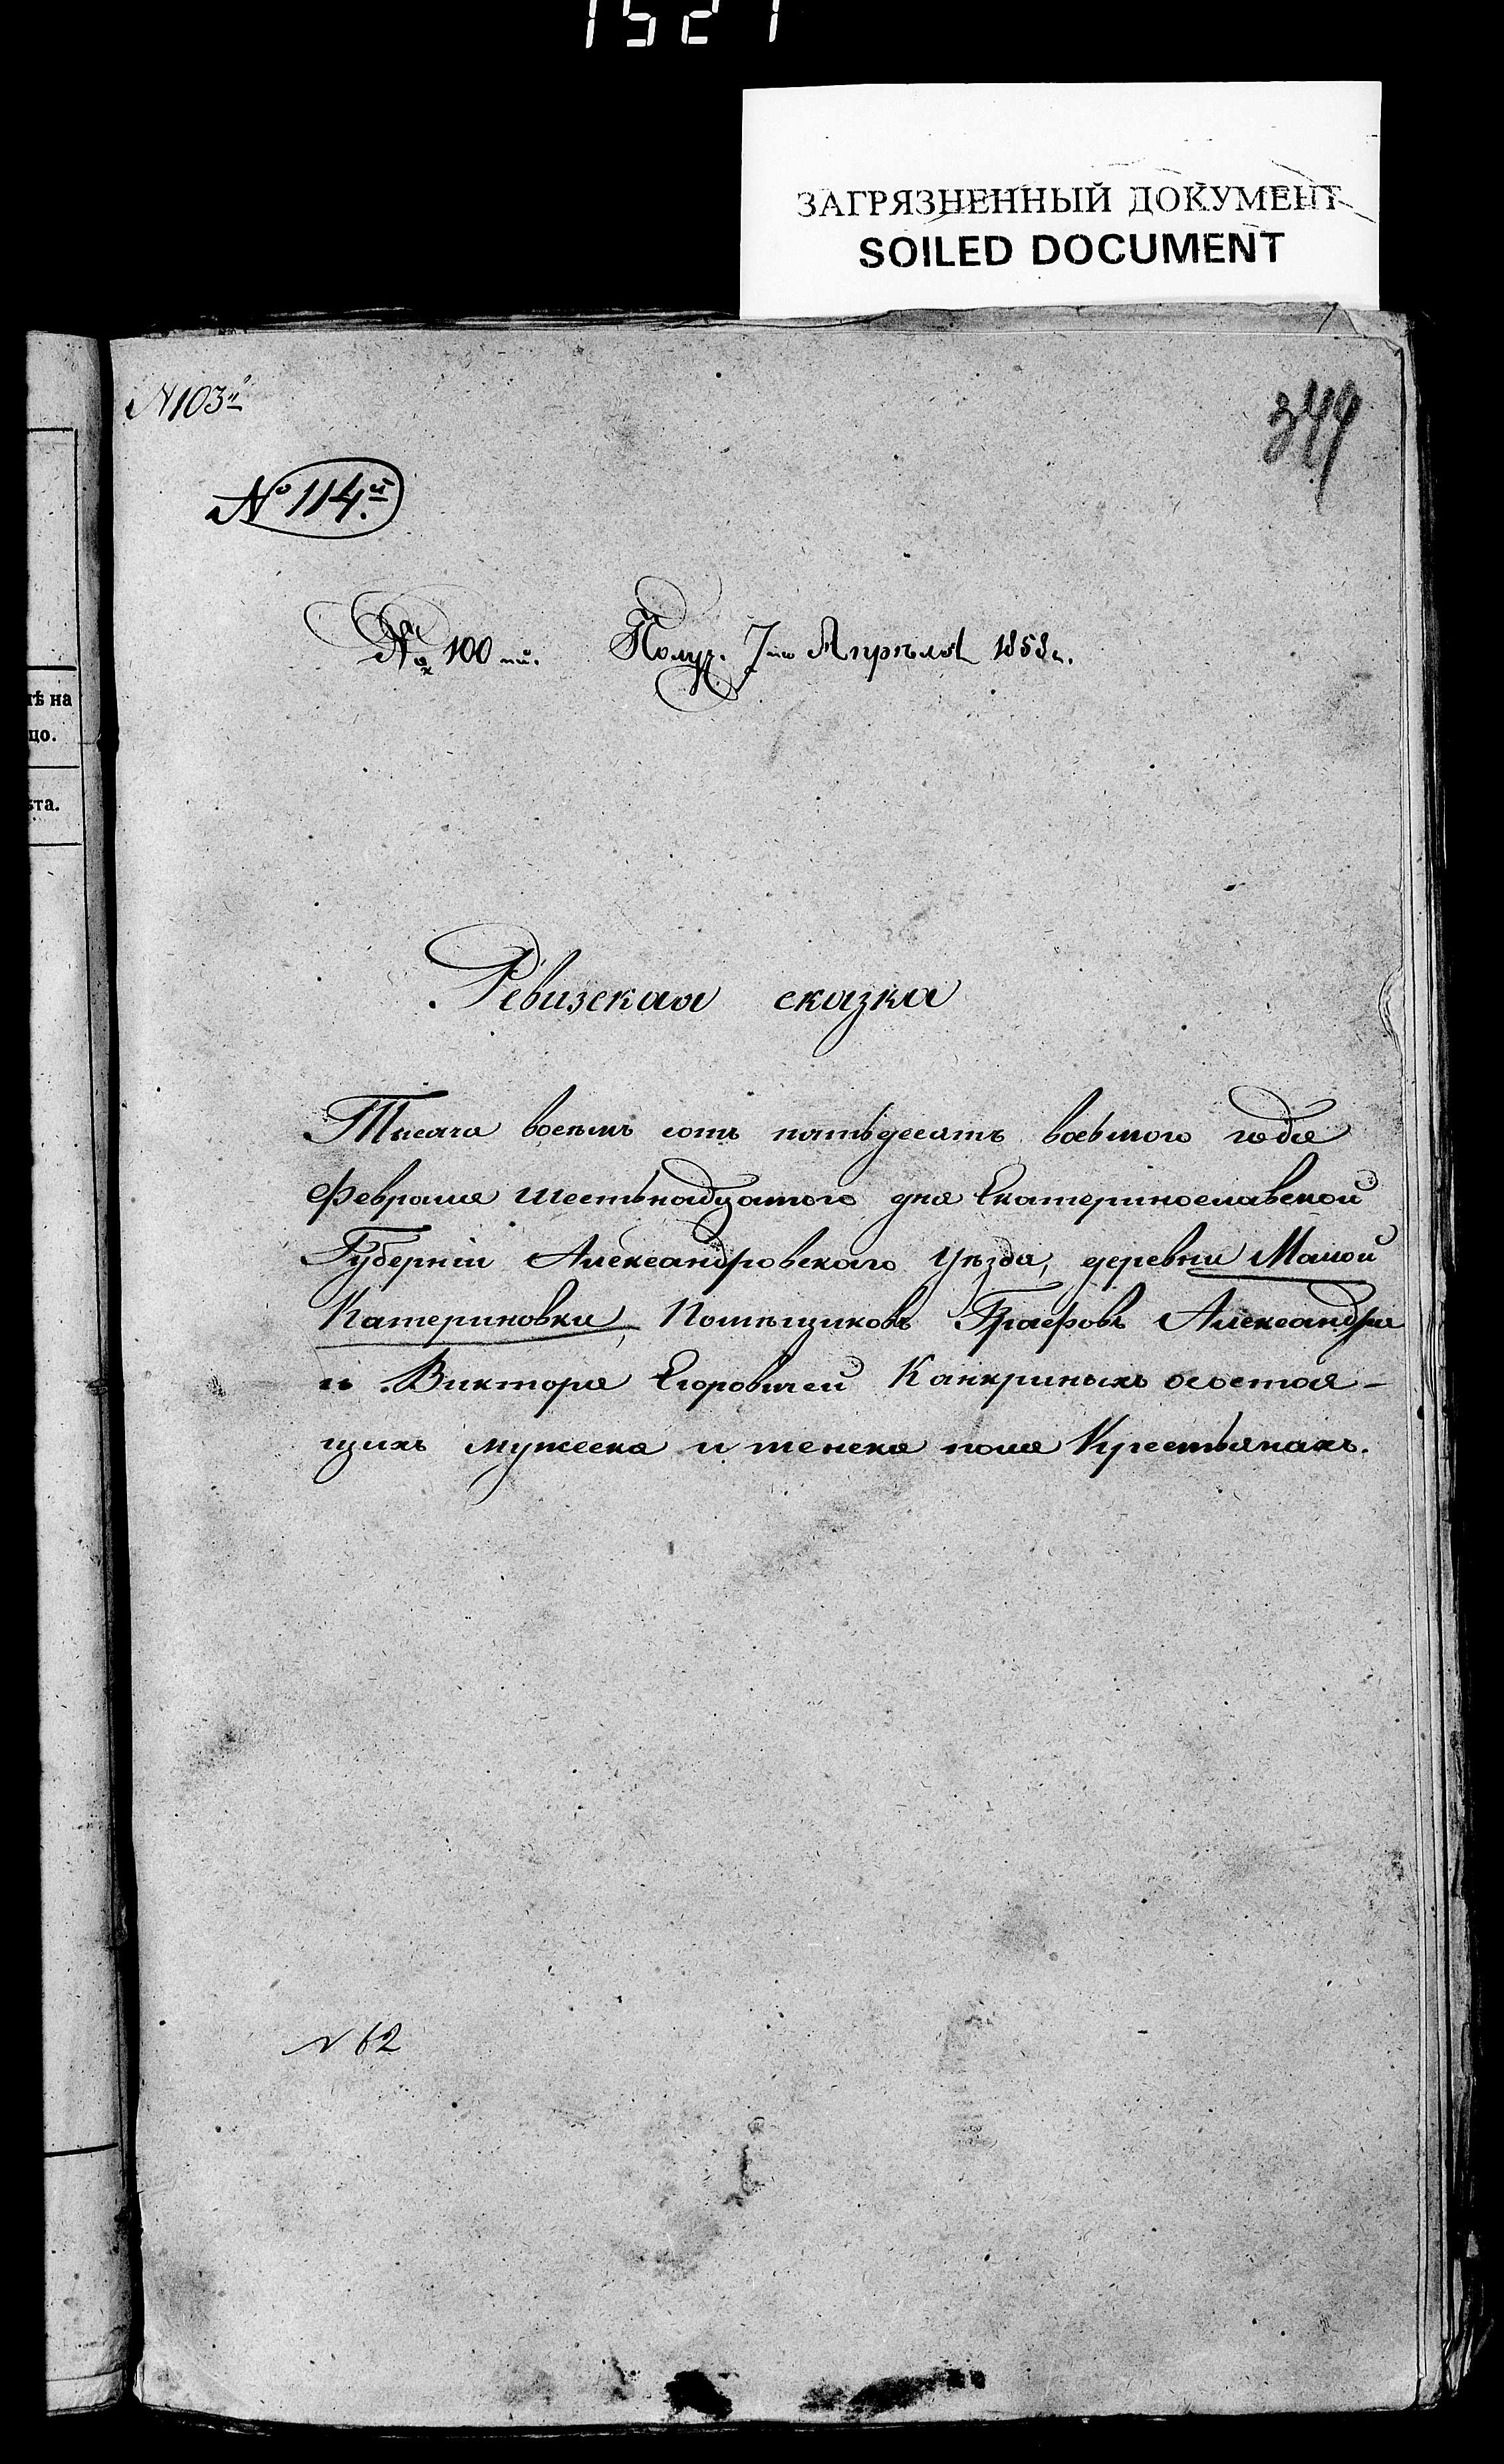 1521
ЗАГРЯЗНЕННЫЙ ДОКУМЕНТ
SOILED DOCUMENT
N 103й
349
№ 114.й
№ 100 ый. Получ. 7го Апрѣля 1858 г.
тѣ на
цо.
ѣта.
Ревизская сказка
Тысяча восемь сотъ пятьдесятъ восьмого года
Февраля шестьнадцатого дня Екатеринославской
Губерніи Александровского Уѣзда, деревни Малой
Катериновки, Помѣщиковъ Графовъ Александра
и Виктора Егоровичей Канкриныхъ осостоя-
щихъ мужеска и женска пола Крестьянахъ.
N 62